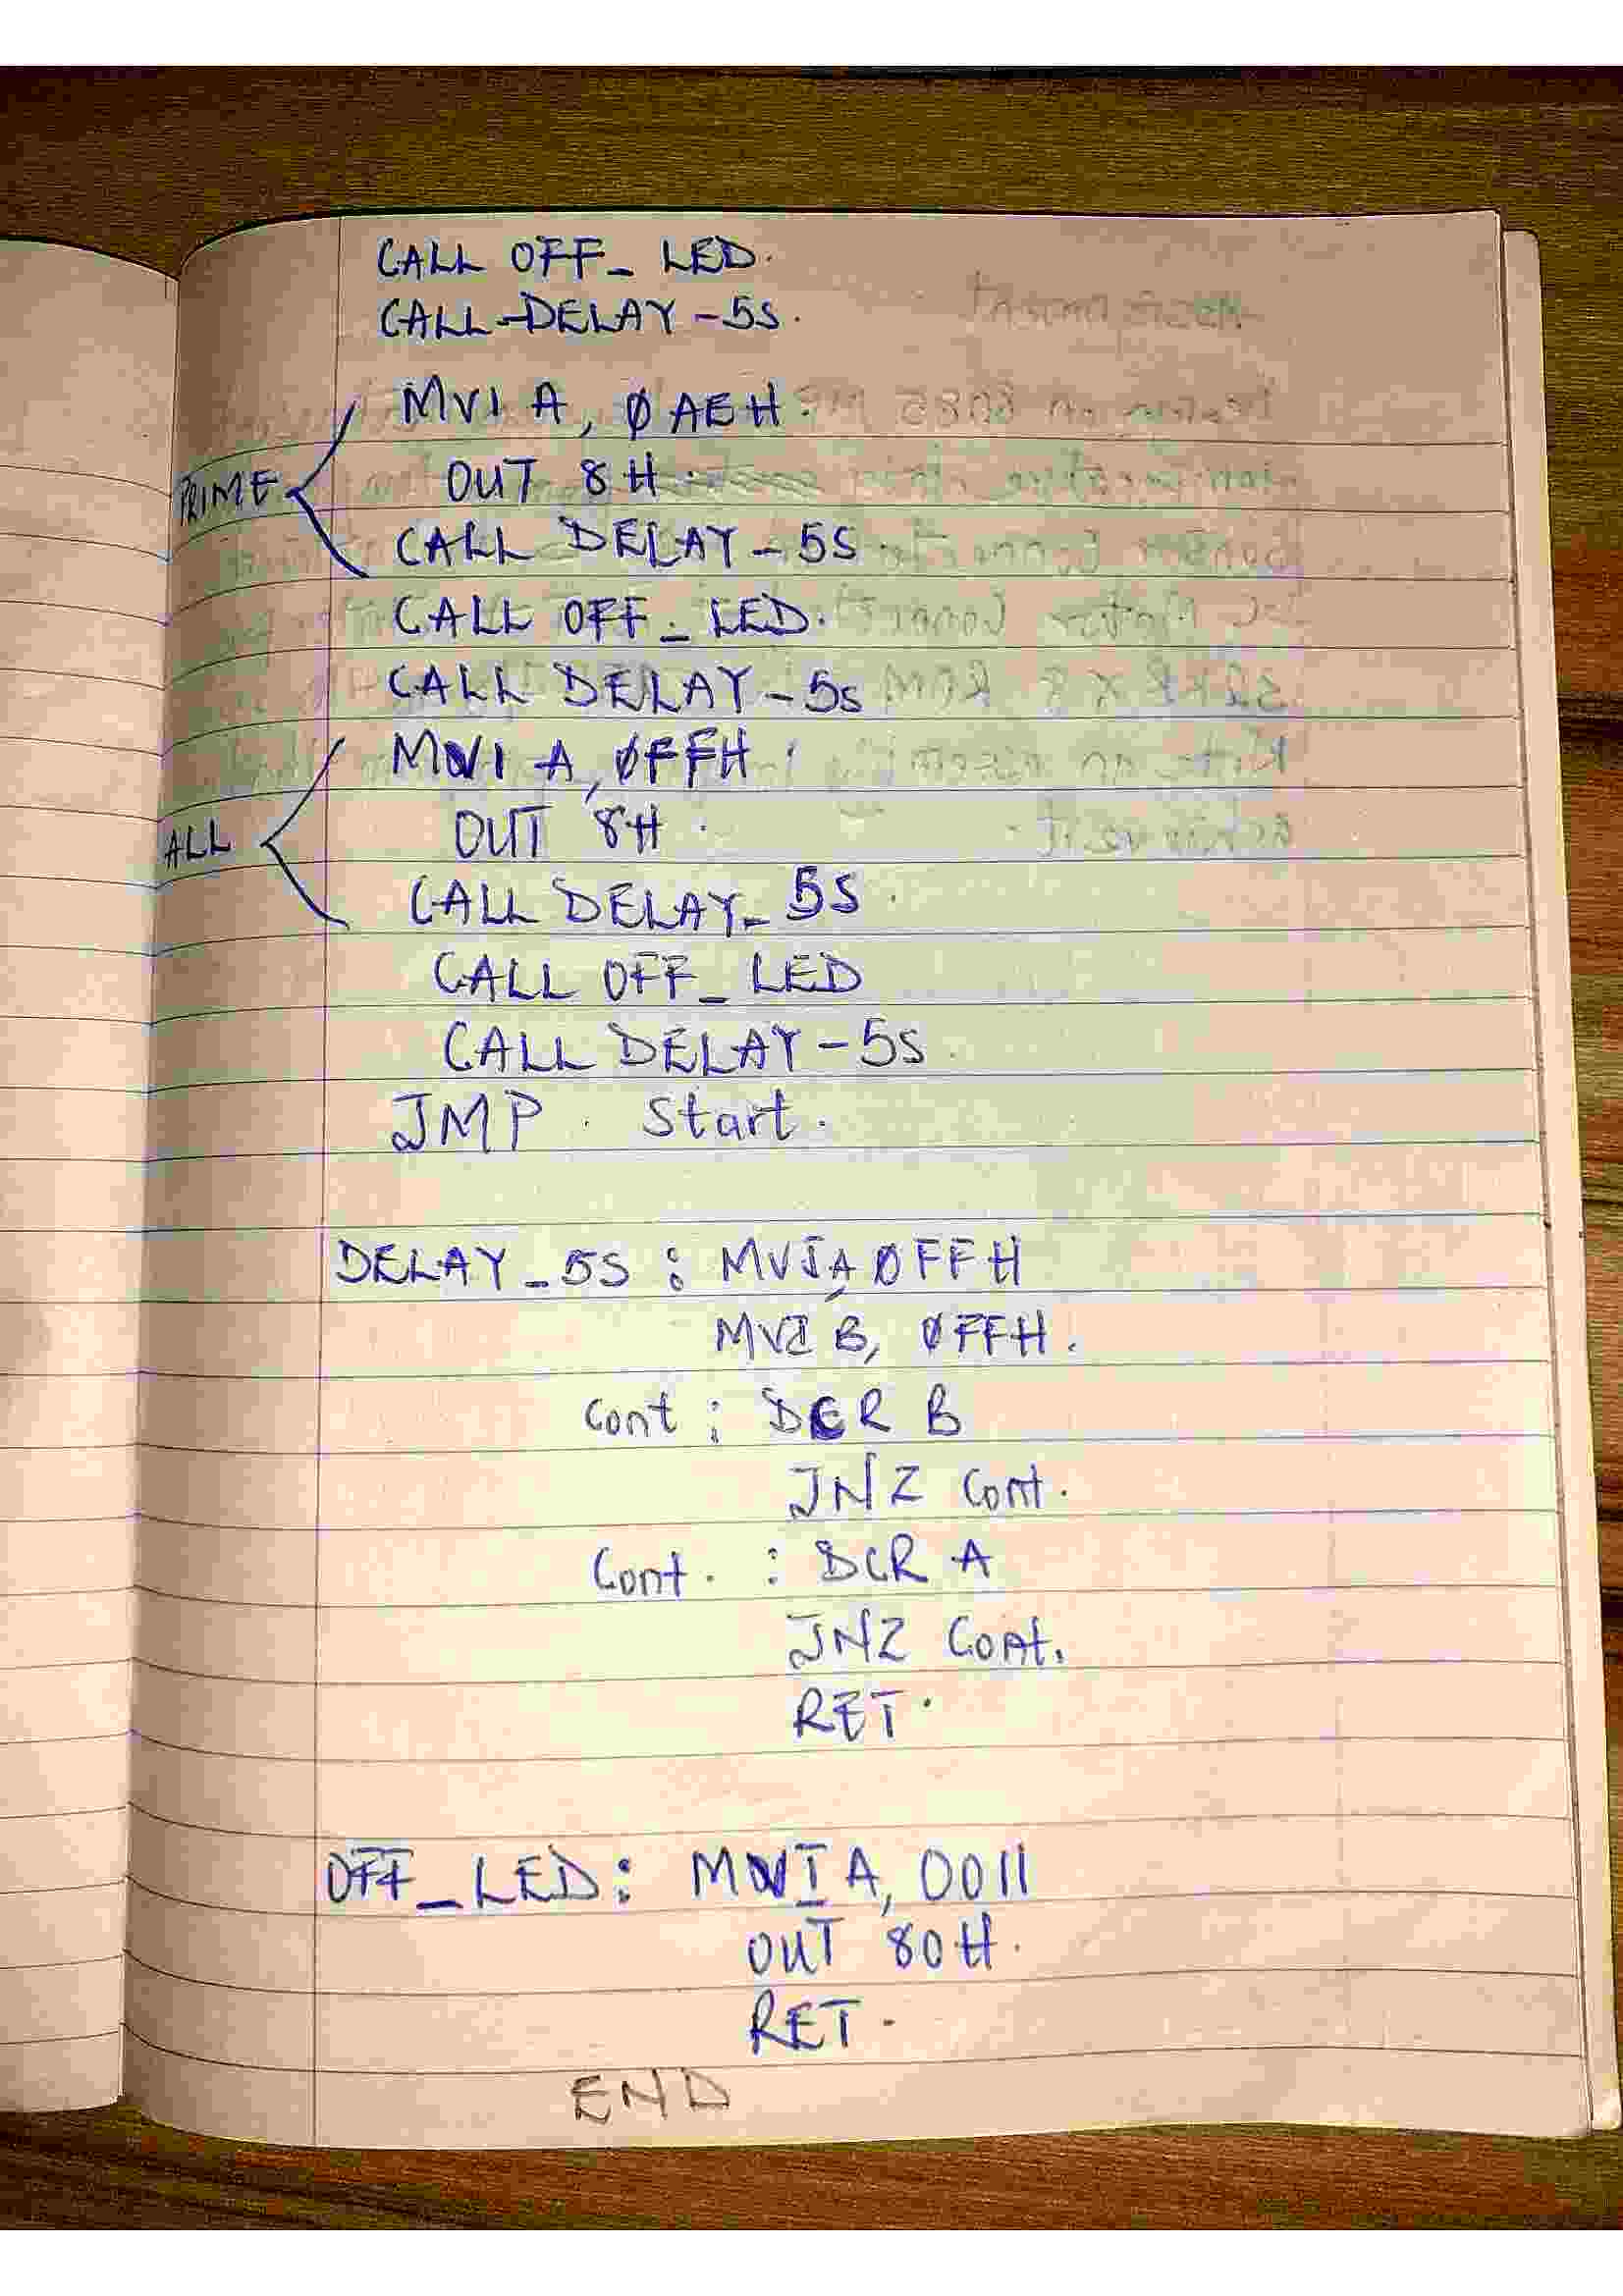 CALL OFF_ LED.
CALL-DELAY-5S.
MVI A, ØAEH.
PRIME
OUT 8H.
CALL DELAY-5S.
CALL OFF_ LED.
CALL DELAY-5S
MVI A, ØFFH
OUT 8H.
ALL
CALL DELAY_ 5S.
CALL OFF_ LED
CALL DELAY-5S.
JMP. Start.
DELAY_5S : MVI A, ØFFH
MVI B, ØFFH.
Cont : DCR B
JNZ Cont.
Cont. : DCR A
JNZ Cont.
RET.
OFF_LED: MVI A, 0011
OUT 80H.
RET.
END